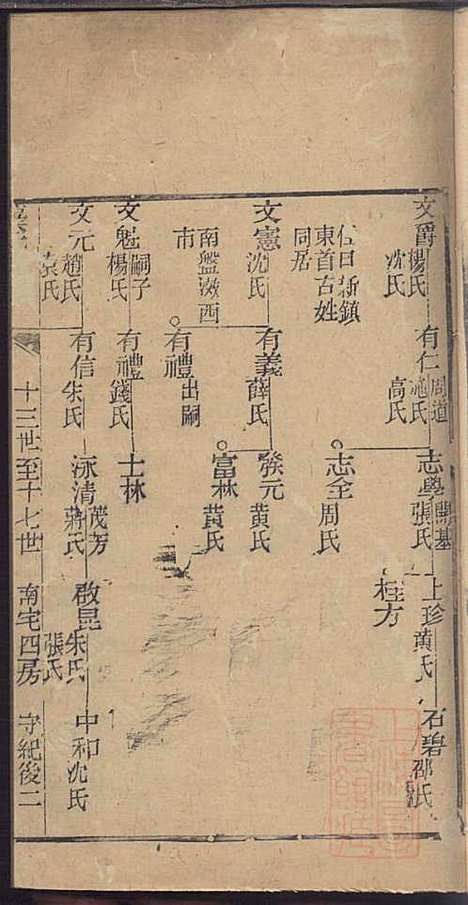 文爵 楊氏 沈氏
有仁 周道 施氏 高氏
志學 開基 張氏
上珍 黃氏
石碧 邵氏
程方
住田 新鎮
東首古姓
同居
志全 周氏
文憲 沈氏
有義 薛氏
發元 黃氏
富林 黃氏
南盤滧西
市
有禮 出嗣
文魁 嗣子 楊氏
有禮 錢氏
士林
文元 趙氏 袁氏
有信 朱氏
泳清 茂芳 蔣氏
啟昆 朱氏 張氏
中和 沈氏
十三世至十七世
南宅四房
守紀後二